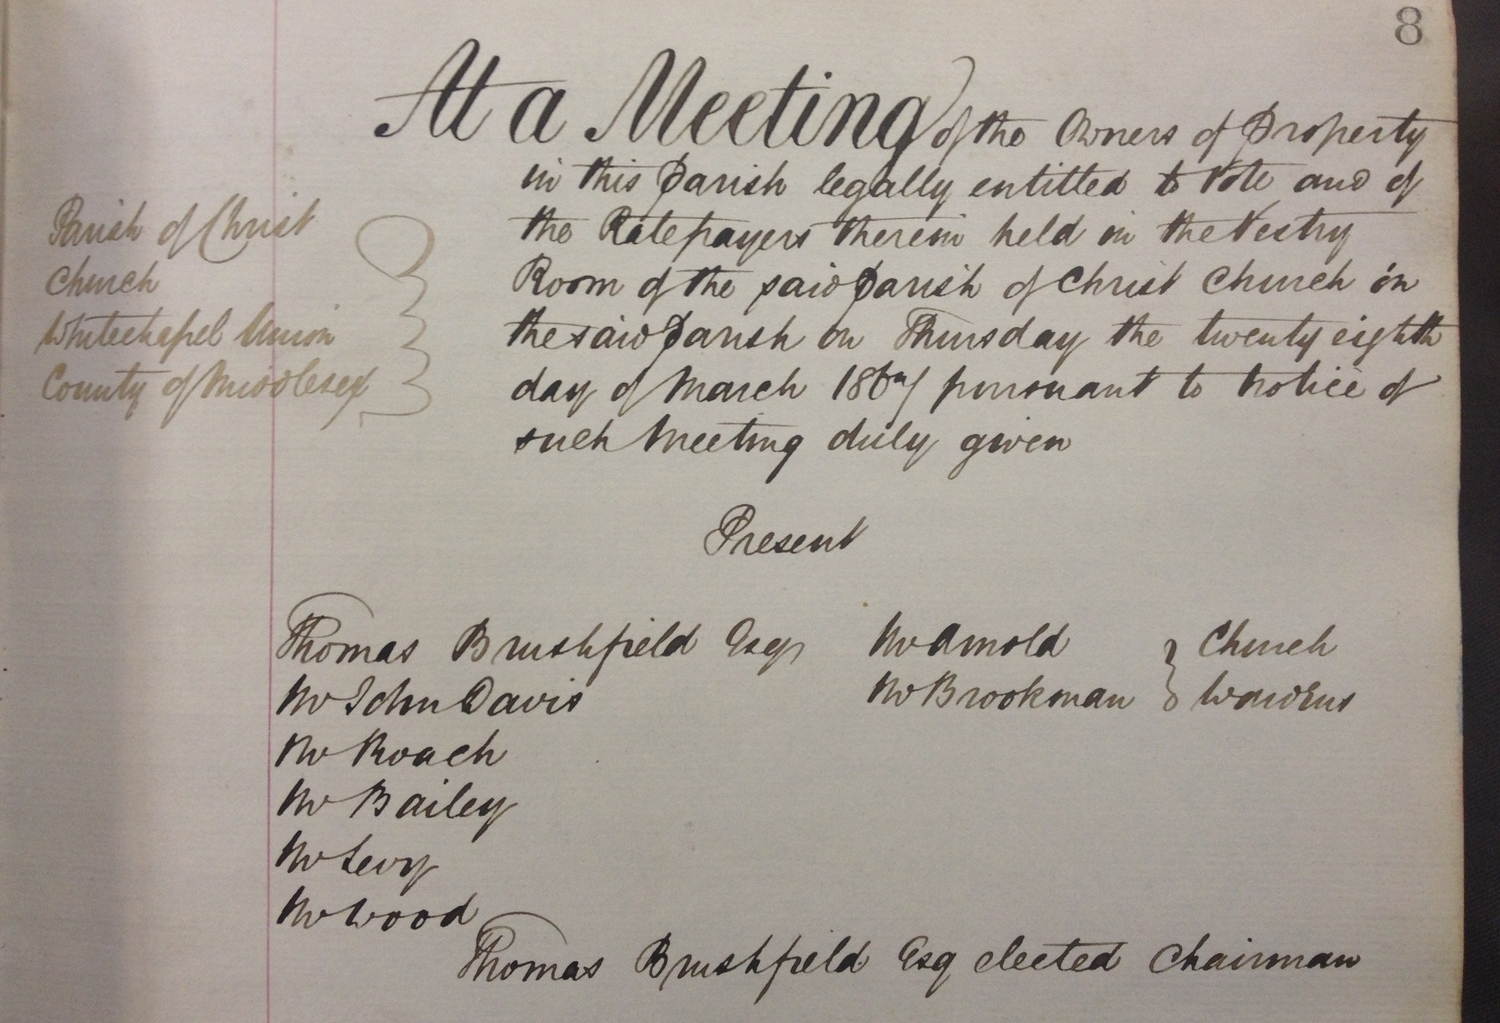 8
At a Meeting of the Owners of Property
in this Parish legally entitled to Vote and of
the Ratepayers therein held in the Vestry
Room of the said Parish of Christ Church in
the said Parish on Thursday the twenty eighth
day of March 1867 pursuant to Notice of
such Meeting duly given
Parish of Christ
Church
Whitechapel Union
County of Middlesex
Present
Thomas Brushfield Esqr
Mr John Davis
Mr Roach
Mr Bailey
Mr Levy
Mr Wood
Mr Arnold
Mr Brookman
Church
Wardens
Thomas Brushfield Esq elected Chairman